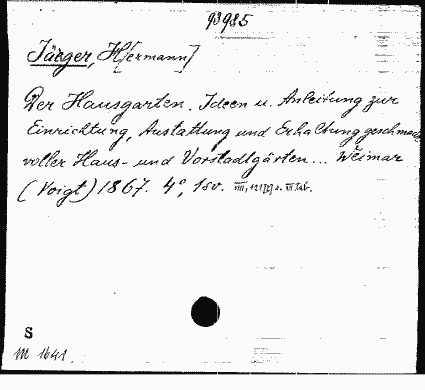 93985
Jäeger, H[ermann]
Der Hausgarten. Ideen u. Anleitung zur
Einrichtung, Austattung und Erhaltung geschmack
voller Haus- und Vorstadtgärten... Weimar
(Voigt) 1867. 4°, 1 sv. VIII, 121 [1] s. VI tab.
S
M 1641